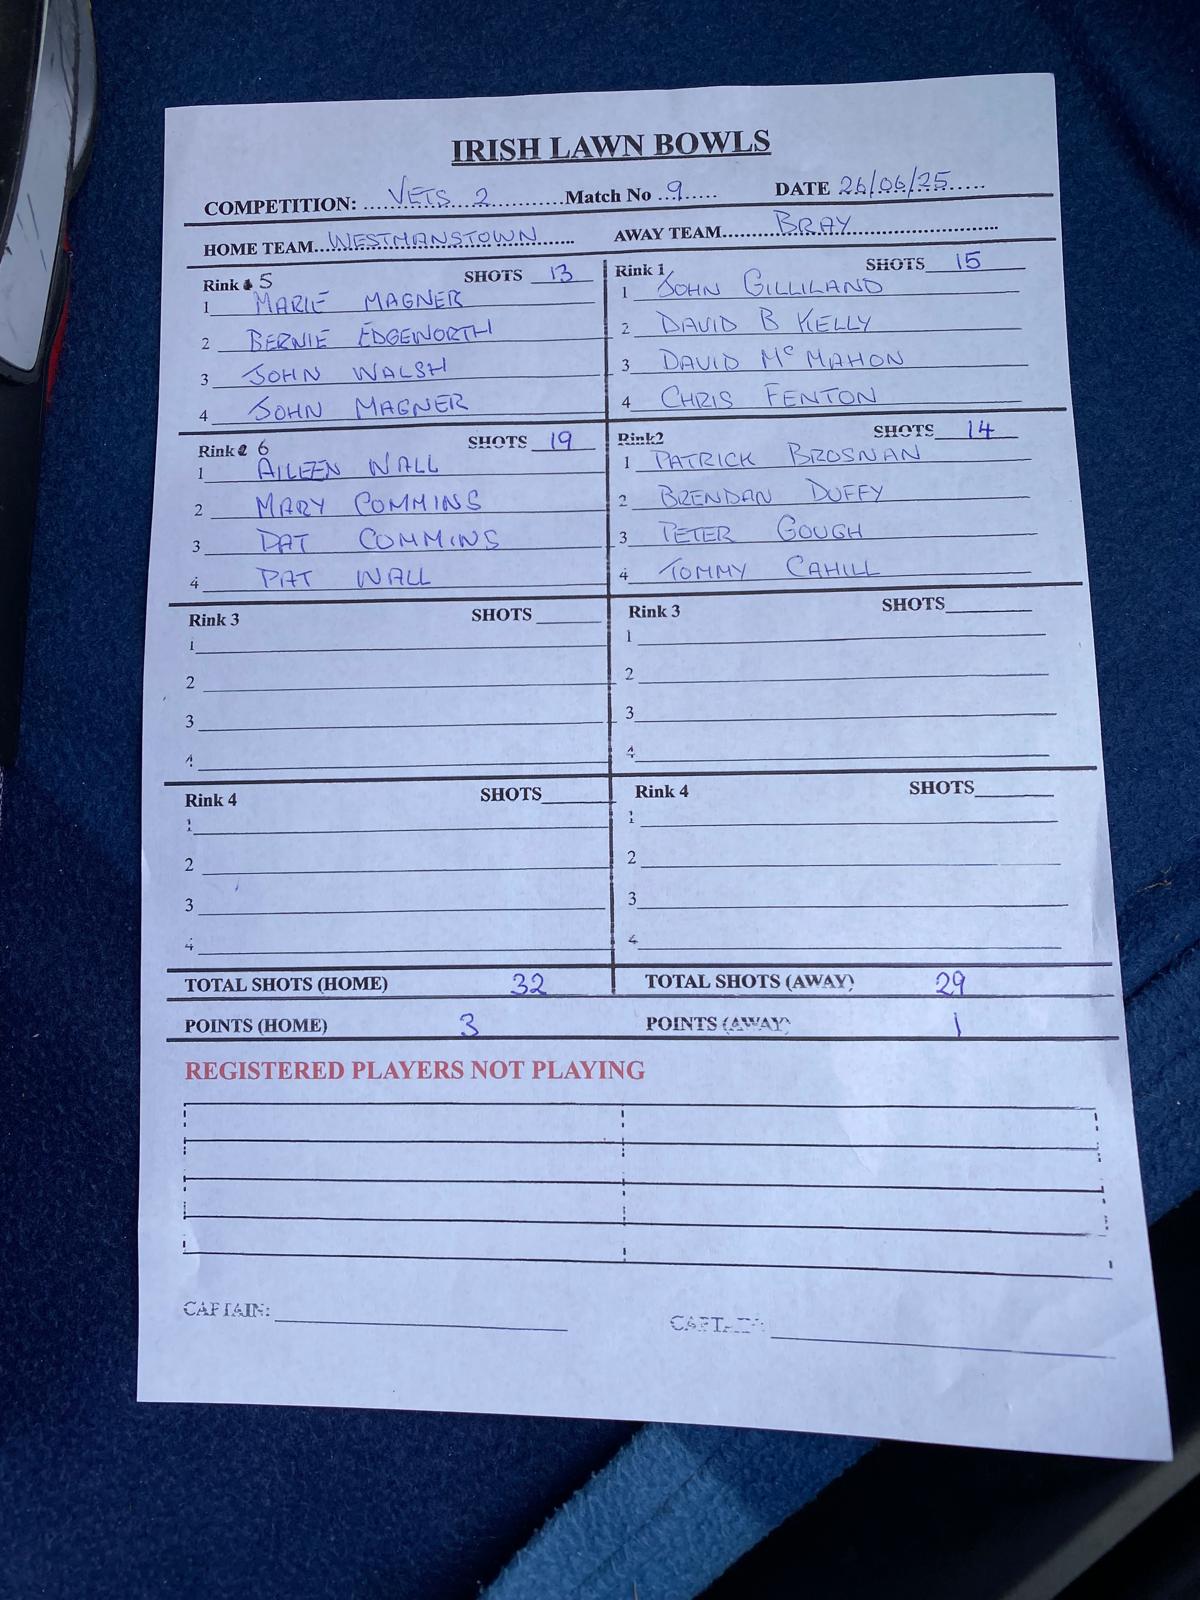 IRISH LAWN BOWLS
COMPETITION: VETS 2 Match No 9 DATE 26/06/25
HOME TEAM WESTMANSTOWN AWAY TEAM BRAY
Rink 5 SHOTS 13
1 MARIE MAGNER
2 BERNIE EDGEWORTH
3 JOHN WALSH
4 JOHN MAGNER
Rink 1 SHOTS 15
1 JOHN GILLILAND
2 DAVID B KELLY
3 DAVID McMAHON
4 CHRIS FENTON
Rink 6 SHOTS 19
1 AILEEN WALL
2 MARY COMMINS
3 PAT COMMINS
4 PAT WALL
Rink2 SHOTS 14
1 PATRICK BROSNAN
2 BRENDAN DUFFY
3 PETER GOUGH
4 TOMMY CAHILL
Rink 3 SHOTS
1
2
3
4
Rink 3 SHOTS
1
2
3
4
Rink 4 SHOTS
1
2
3
4
Rink 4 SHOTS
1
2
3
4
TOTAL SHOTS (HOME) 32 TOTAL SHOTS (AWAY) 29
POINTS (HOME) 3 POINTS (AWAY) 1
REGISTERED PLAYERS NOT PLAYING
CAPTAIN: CAPTAIN: